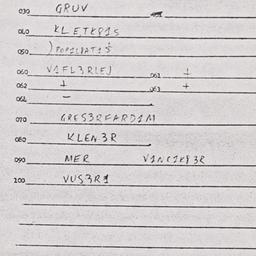 030 GRUV
040 KLETKP1S
050
060 V1FL3RLEJ 061 +
062 + 063 +
064 -
070 GRES3RFARD1M
080 KLEN3R
090 MER
100 VUS3R1